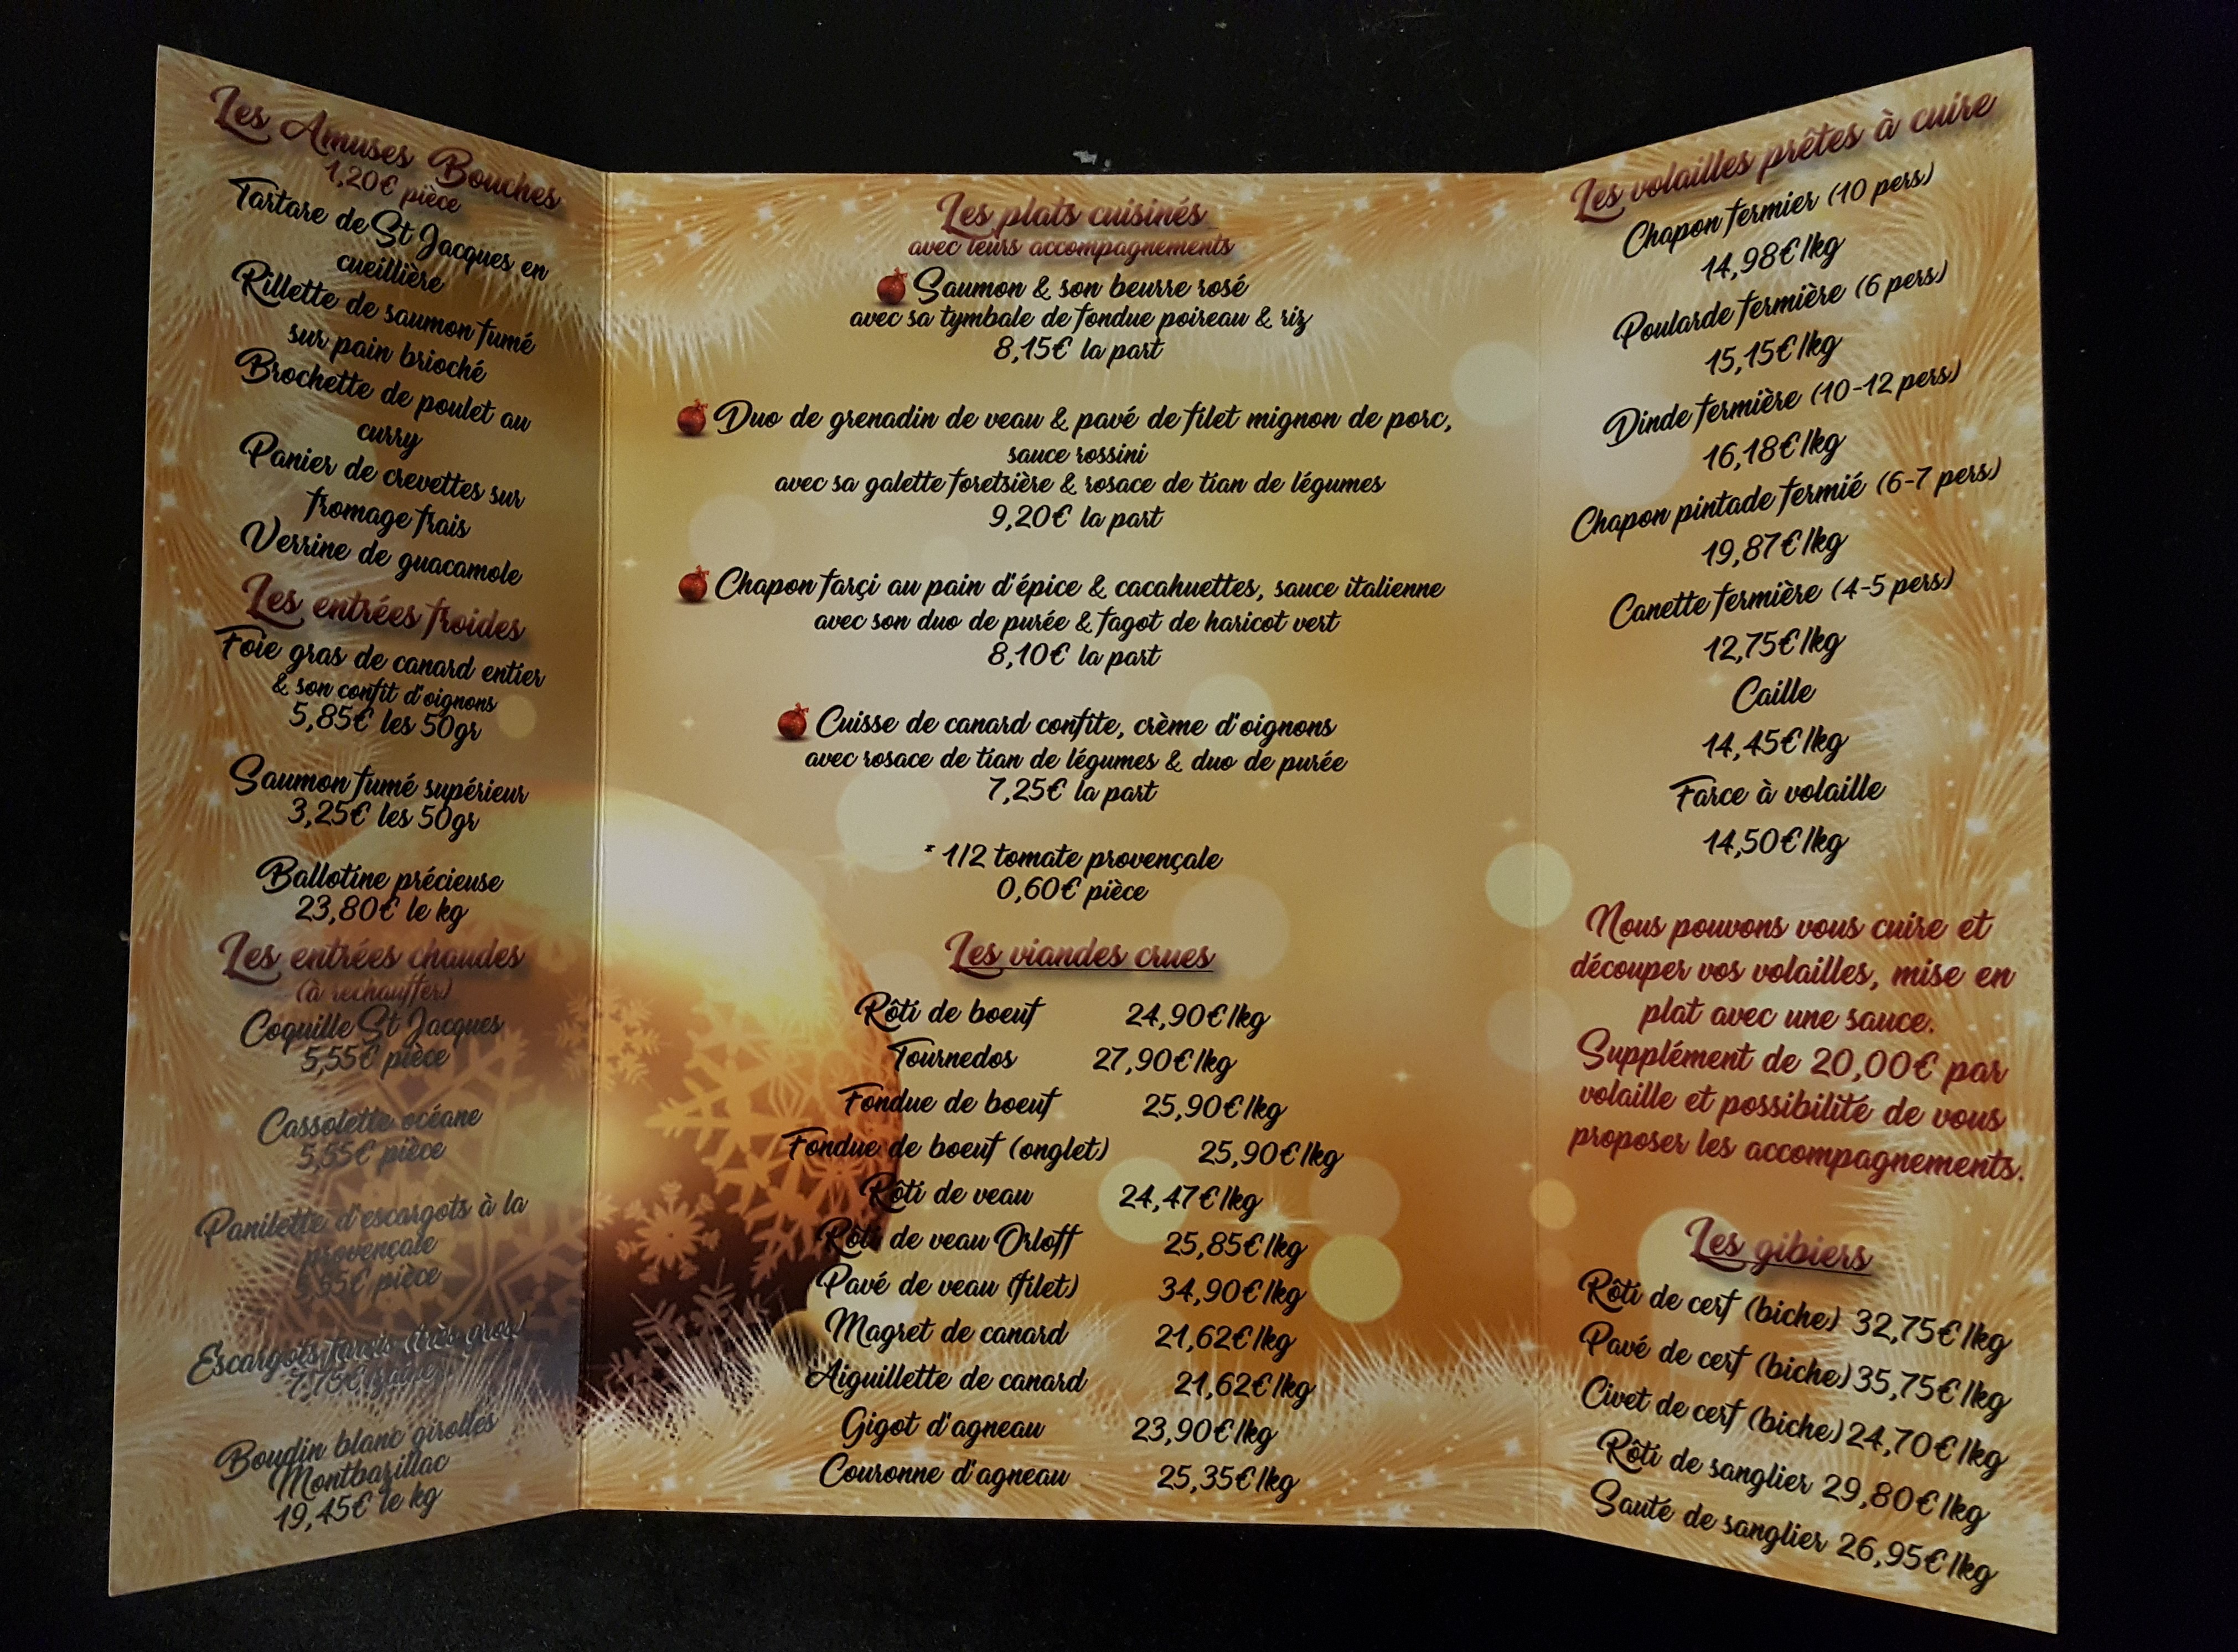 Les Amuses Bouches
1,20€ pièce
Tartare de St Jacques en
cueillière
Rillette de saumon fumé
sur pain brioché
Brochette de poulet au
curry
Panier de crevettes sur
fromage frais
Verrine de guacamole
Les entrées froides
Foie gras de canard entier
& son confit d'oignons
5,85€ les 50gr
Saumon fumé supérieur
3,25€ les 50gr
Ballotine précieuse
23,80€ le kg
Les entrées chaudes
(à rechauffer)
Coquille St Jacques
5,55€ pièce
Cassolette océane
5,55€ pièce
Panilette d'escargots à la
provençale
pièce
Escargots farcis (très gros)
Boudin blanc girolles
Montbazillac
19,45€ le kg
Les plats cuisinés
avec leurs accompagnements
Saumon & son beurre rosé
avec sa tymbale de fondue poireau & riz
8,15€ la part
Duo de grenadin de veau & pavé de filet mignon de porc,
sauce rossini
avec sa galette foretsière & rosace de tian de légumes
9,20€ la part
Chapon farçi au pain d'épice & cacahuettes, sauce italienne
avec son duo de purée & fagot de haricot vert
8,10€ la part
Cuisse de canard confite, crème d'oignons
avec rosace de tian de légumes & duo de purée
7,25€ la part
* 1/2 tomate provençale
0,60€ pièce
Les viandes crues
Rôti de boeuf 24,90€/kg
Tournedos 27,90€/kg
Fondue de boeuf 25,90€/kg
Fondue de boeuf (onglet) 25,90€/kg
Rôti de veau 24,47€/kg
Rôti de veau Orloff 25,85€/kg
Pavé de veau (filet) 34,90€/kg
Magret de canard 21,62€/kg
Aiguillette de canard 21,62€/kg
Gigot d'agneau 23,90€/kg
Couronne d'agneau 25,35€/kg
Les volailles prêtes à cuire
Chapon fermier (10 pers)
14,98€/kg
Poularde fermière (6 pers)
15,15€/kg
Dinde fermière (10-12 pers)
16,18€/kg
Chapon pintade fermié (6-7 pers)
19,87€/kg
Canette fermière (4-5 pers)
12,75€/kg
Caille
14,45€/kg
Farce à volaille
14,50€/kg
Nous pouvons vous cuire et
découper vos volailles, mise en
plat avec une sauce.
Supplément de 20,00€ par
volaille et possibilité de vous
proposer les accompagnements.
Les gibiers
Rôti de cerf (biche) 32,75€/kg
Pavé de cerf (biche) 35,75€/kg
Civet de cerf (biche) 24,70€/kg
Rôti de sanglier 29,80€/kg
Sauté de sanglier 26,95€/kg